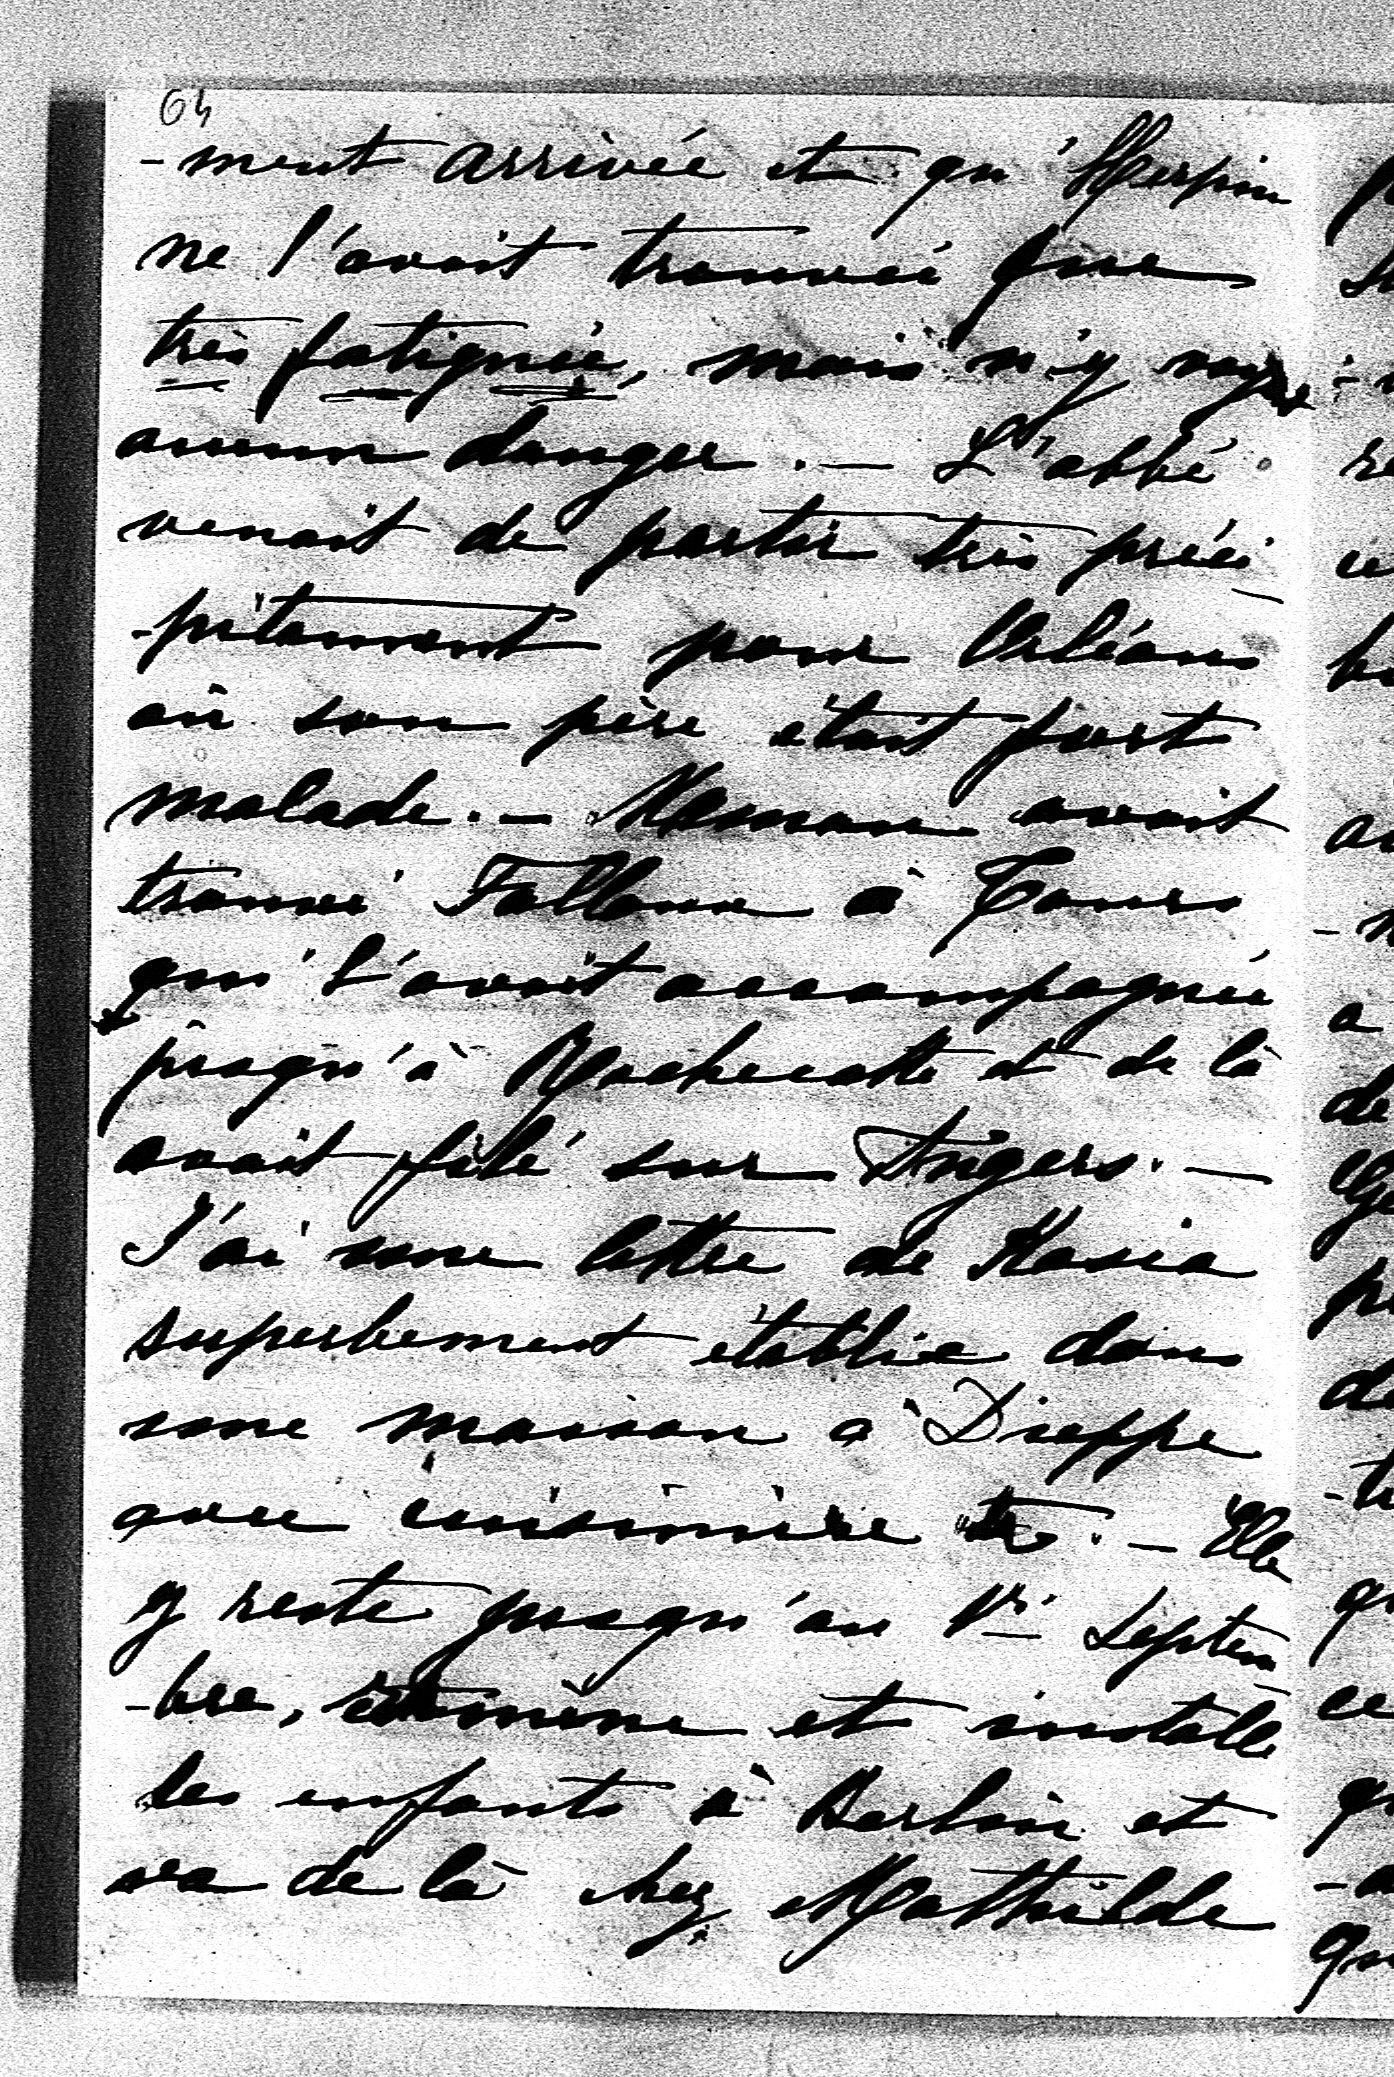 64
-ment arrivée et qu'Herpin
ne l'avait trouvée que
très fatiguée, mais n'y voyait
aucun danger. — L'abbé
venait de partir très préci
-pitamment pour Orléans
où son père était fort
malade. — Maman avait
trouvé Falloux à Tours
qui l'avait accompagnée
jusqu'à Rochecotte et de là
avait filé sur Angers. —
J'ai une lettre de Kasia
superbement établie dans
une maison à Dieppe
avec cuisinière etc. — Elle
y reste jusqu'au 1er Septem
-bre, ramène et installe
les enfants à Berlin et
va de là chez Mathilde